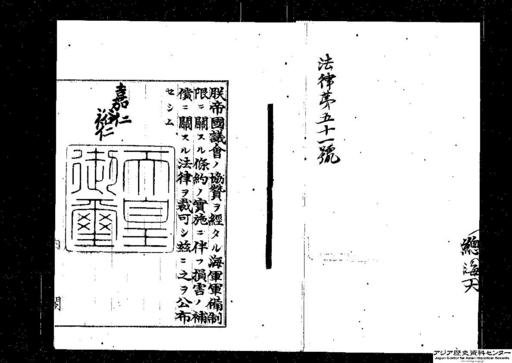 法律第五十一號
朕帝國議會ノ協贊ヲ經タル海軍軍備制
限ニ關スル條約ノ實施ニ伴フ損害ノ補
償ニ關スル法律ヲ裁可シ玆ニ之ヲ公布
セシム
嘉仁
裕仁
天皇
御璽
內
閣
アジア歴史資料センター
Japan Center for Asian Historical Records